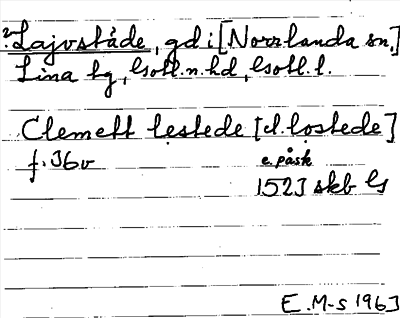 2. Lajvståde, gd i [Norrlanda sn,]
Lina hg, Gotl. n. hd, Gotl. l.
Clemett lestede [el. lostede]
f. 36v e. påsk
1523 skb Gs
E. M-s 1963